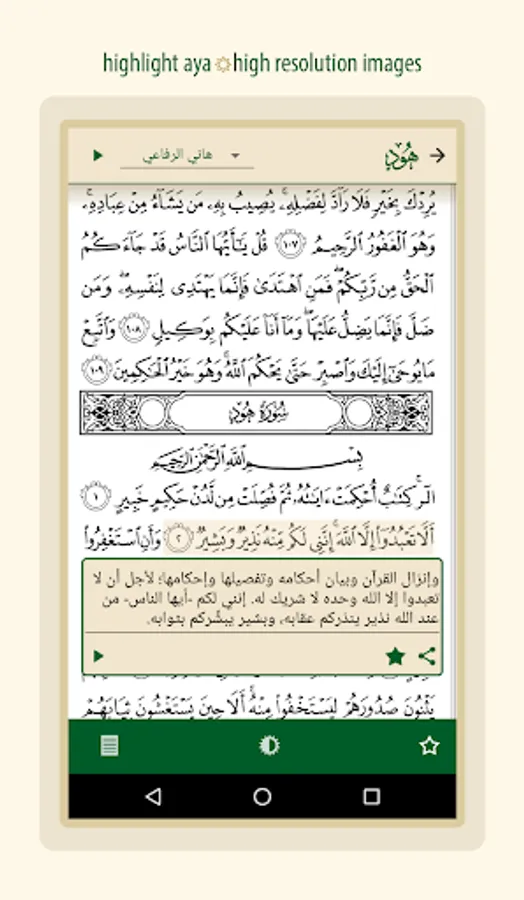 highlight aya ۞ high resolution images
هاني الرفاعي
هُود
يُرِدْكَ بِخَيْرٍ فَلَا رَآدَّ لِفَضْلِهِۦۚ يُصِيبُ بِهِۦ مَن يَشَآءُ مِنْ عِبَادِهِۦۚ
وَهُوَ ٱلْغَفُورُ ٱلرَّحِيمُ ١٠٧ قُلْ يَٰٓأَيُّهَا ٱلنَّاسُ قَدْ جَآءَكُمُ
ٱلْحَقُّ مِن رَّبِّكُمْۖ فَمَنِ ٱهْتَدَىٰ فَإِنَّمَا يَهْتَدِى لِنَفْسِهِۦۖ وَمَن
ضَلَّ فَإِنَّمَا يَضِلُّ عَلَيْهَاۖ وَمَآ أَنَا۠ عَلَيْكُم بِوَكِيلٍ ١٠٨ وَٱتَّبِعْ
مَا يُوحَىٰٓ إِلَيْكَ وَٱصْبِرْ حَتَّىٰ يَحْكُمَ ٱللَّهُۚ وَهُوَ خَيْرُ ٱلْحَٰكِمِينَ ١٠٩
سُورَةُ هُودٍ
بِسْمِ ٱللَّهِ ٱلرَّحْمَٰنِ ٱلرَّحِيمِ
الٓرۚ كِتَٰبٌ أُحْكِمَتْ ءَايَٰتُهُۥ ثُمَّ فُصِّلَتْ مِن لَّدُنْ حَكِيمٍ خَبِيرٍ ١
أَلَّا تَعْبُدُوٓا۟ إِلَّا ٱللَّهَۚ إِنَّنِى لَكُم مِّنْهُ نَذِيرٌ وَبَشِيرٌ ٢ وَأَنِ ٱسْتَغْفِرُوا۟
وإنزال القرآن وبيان أحكامه وتفصيلها وإحكامها؛ لأجل أن لا
تعبدوا إلا الله وحده لا شريك له. إنني لكم -أيها الناس- من
عند الله نذير ينذركم عقابه، وبشير يبشِّركم بثوابه.
يَثْنُونَ صُدُورَهُمْ لِيَسْتَخْفُوا۟ مِنْهُۚ أَلَا حِينَ يَسْتَغْشُونَ ثِيَابَهُمْ